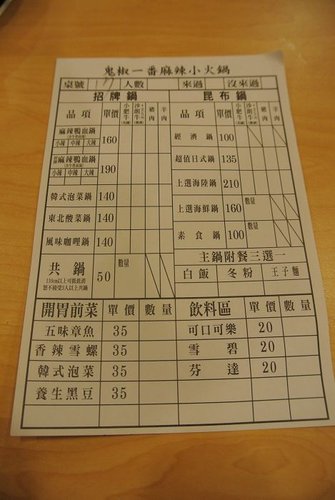 鬼椒一番麻辣小火鍋
桌號 人數 來過 沒來過
招牌鍋 昆布鍋
品項 單價 豬肉 羊肉 品項 單價 豬肉 羊肉
麻辣鴨血鍋 160 經濟鍋 100
小辣 中辣 大辣
麻辣鴨血鍋 190 超值日式鍋 135
小辣 中辣 大辣
上選海陸鍋 210
韓式泡菜鍋 140 上選海鮮鍋 160 數量
東北酸菜鍋 140 素食鍋 100 數量
風味咖哩鍋 140 主鍋附餐三選一
共鍋 50 數量 白飯 冬粉 王子麵
開胃前菜 單價 數量 飲料區 單價 數量
五味章魚 35 可口可樂 20
香辣雪螺 35 雪碧 20
韓式泡菜 35 芬達 20
養生黑豆 35